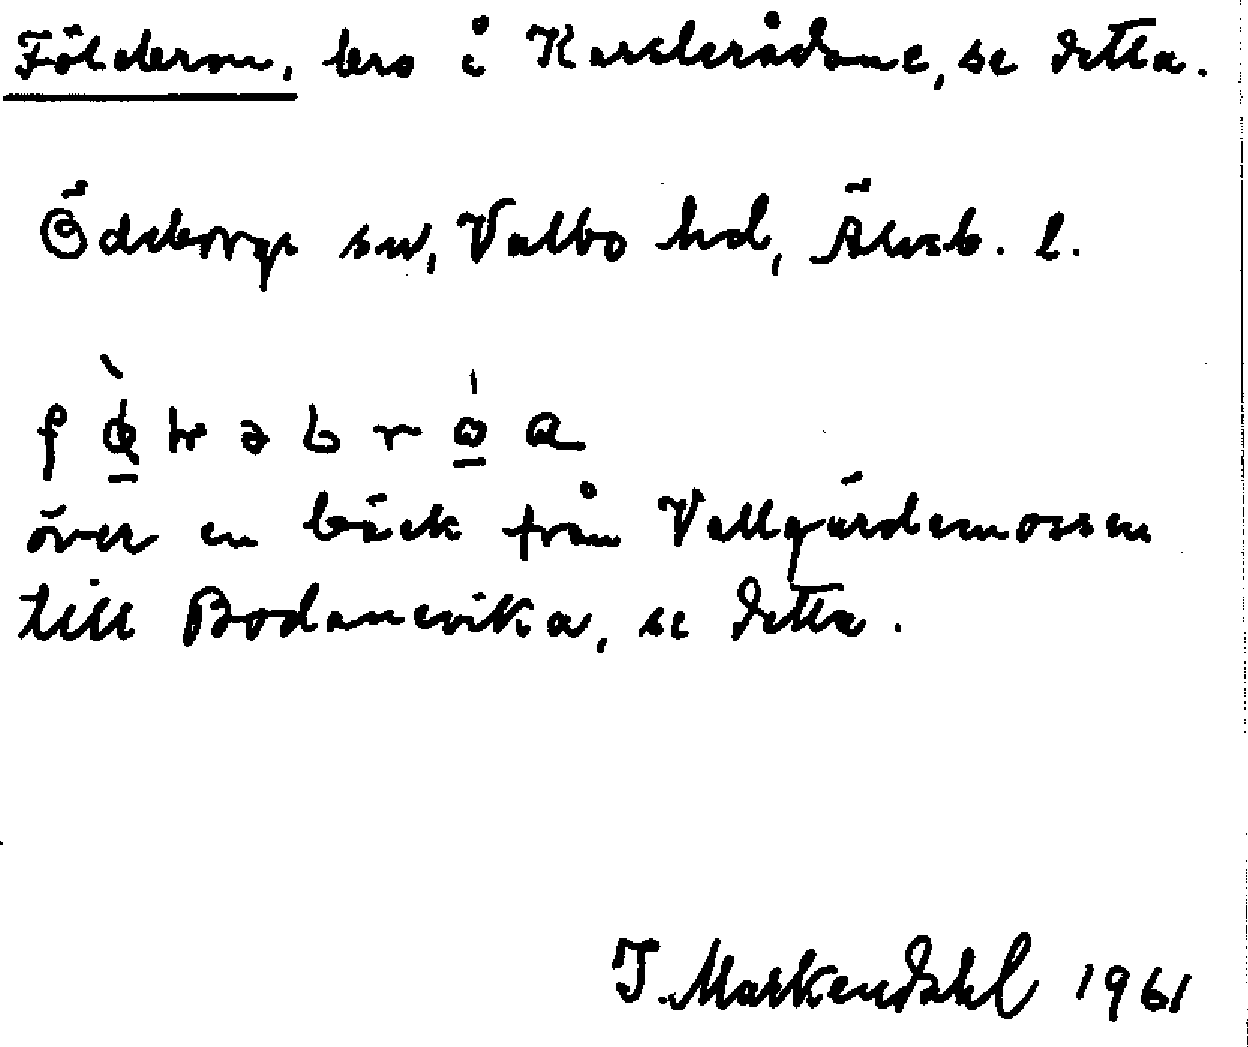 Följebron, bro i Karslerådane, se detta.
Ödeborgs sn, Valbo hd, Älvsb. l.
över en bäck från Vallgärdemossen
till Bodanevika, se detta.
J. Markendahl 1961